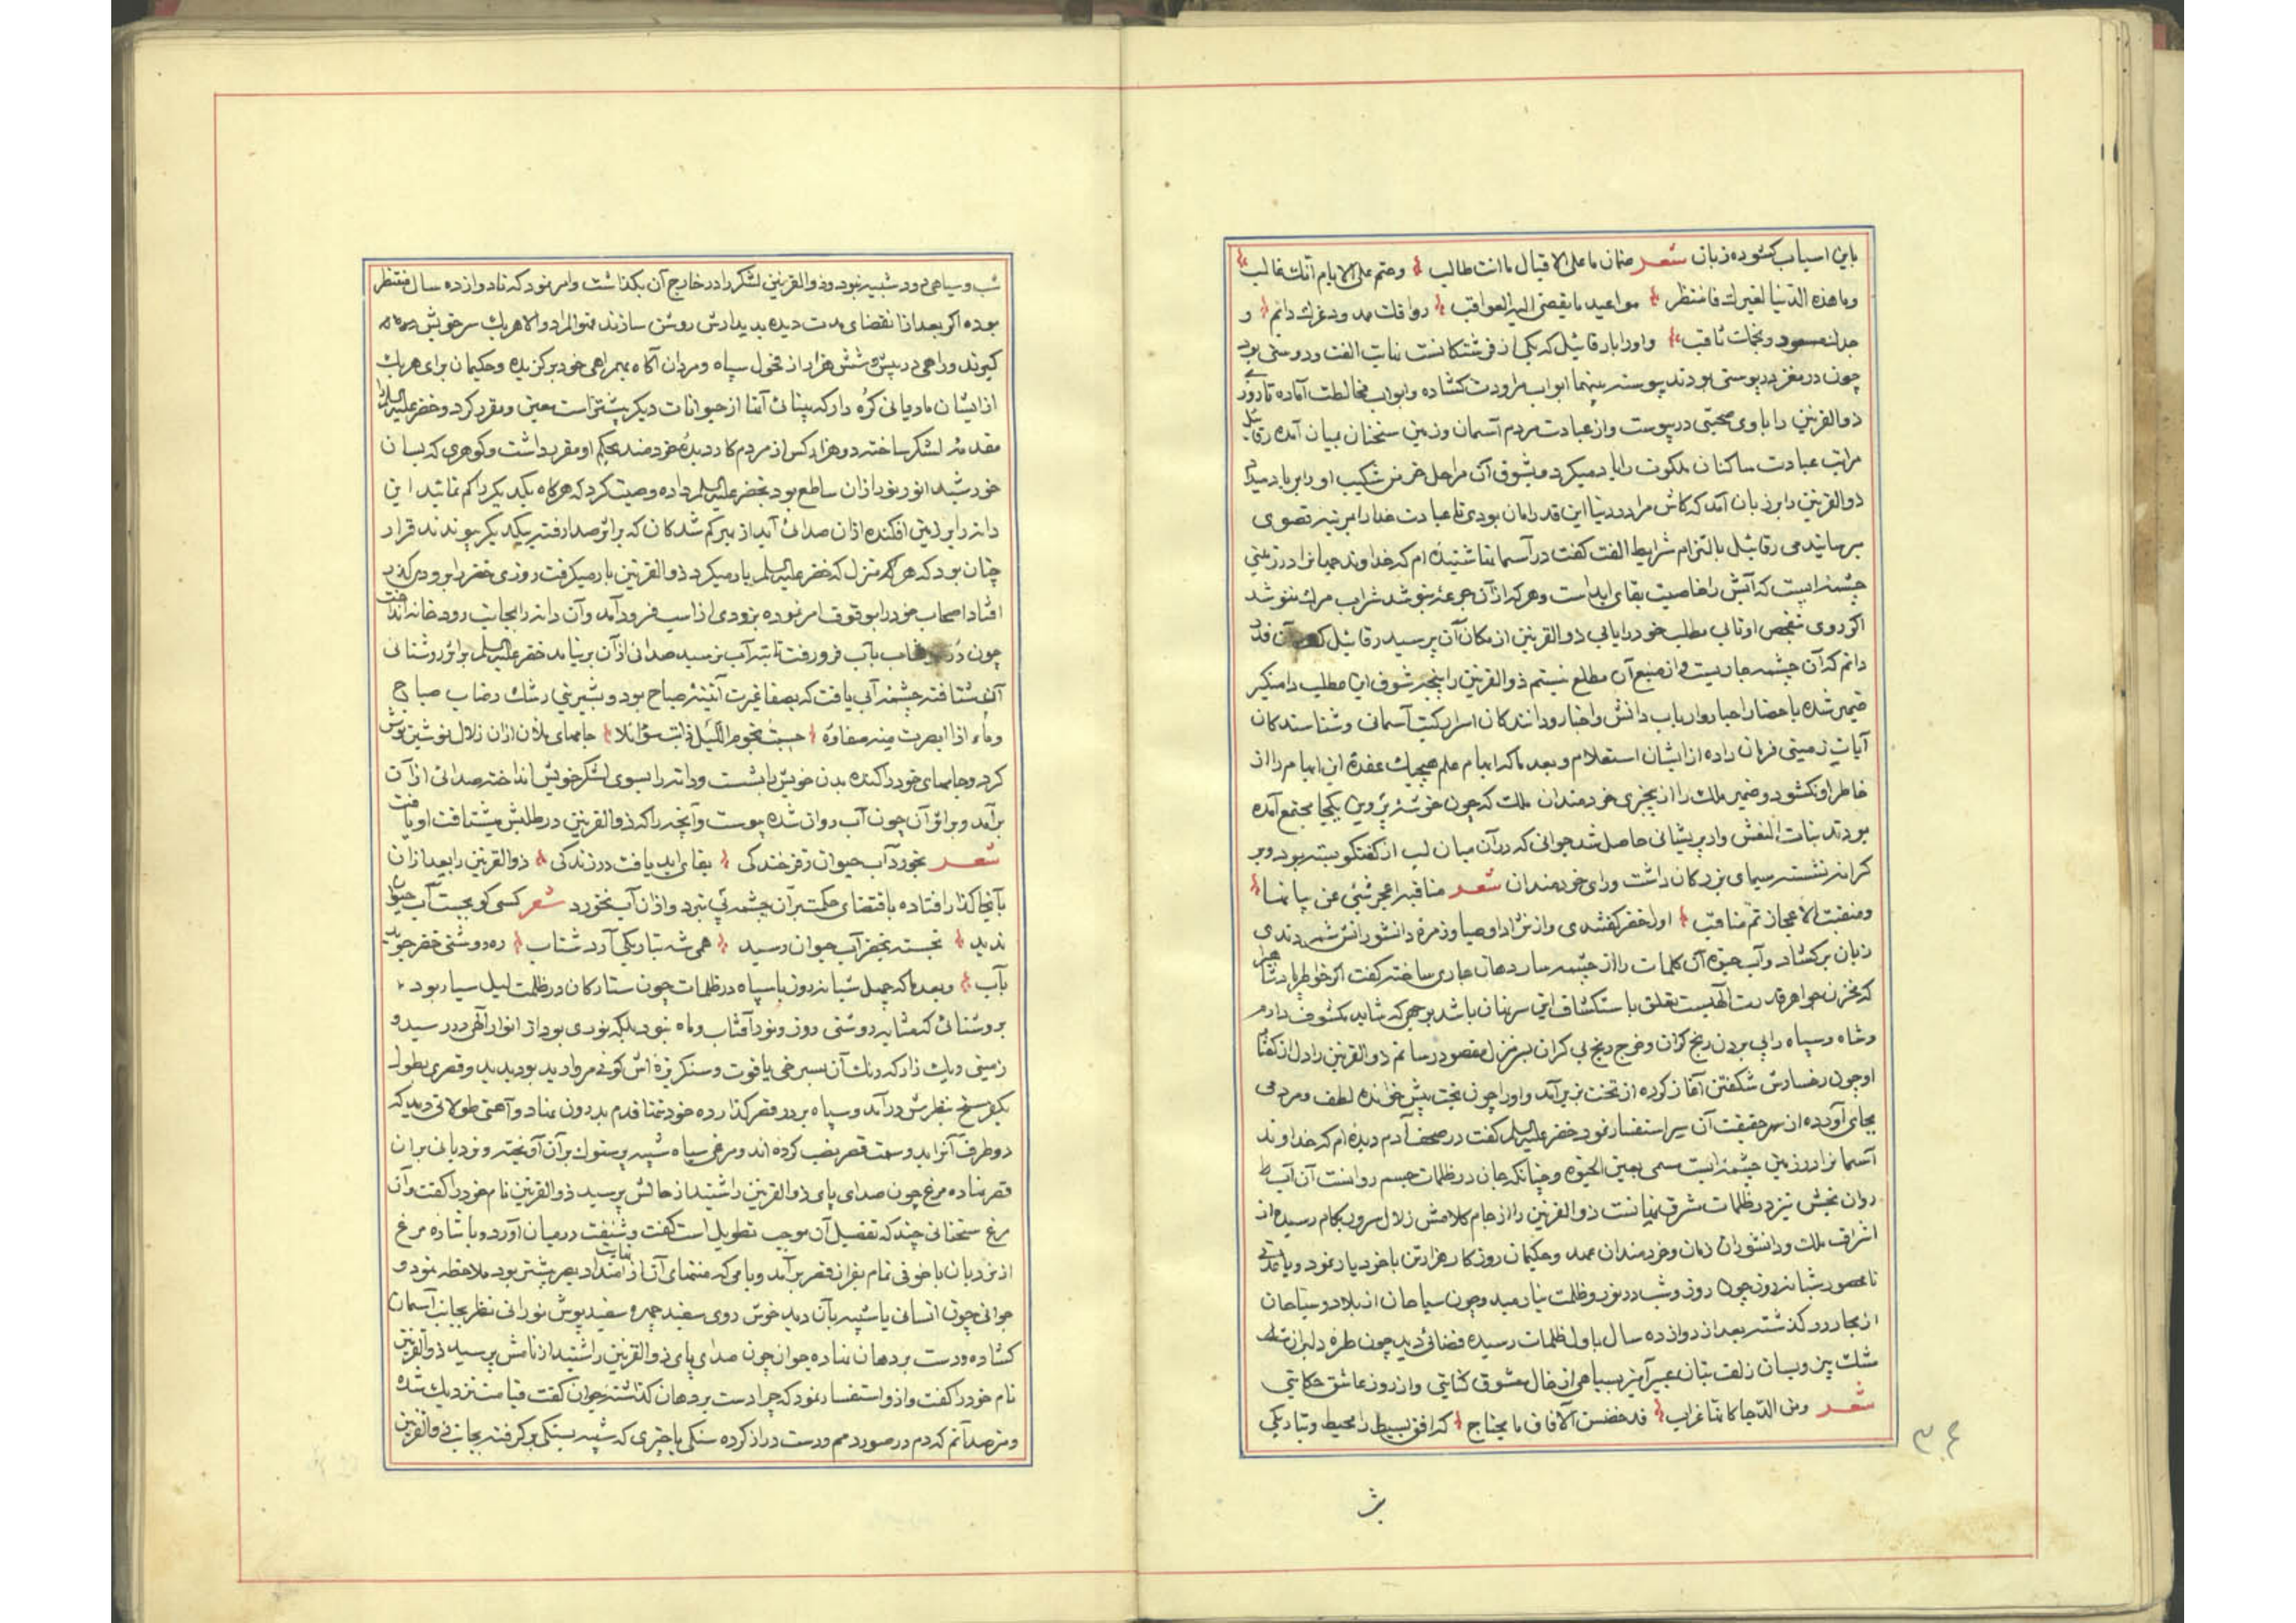 باین اسباب کشوده زبان شعر ضمان ما علی الاقبال ما انت طالب وحتم علی الایام انک غالب
وما هذه الدنیا لغیرک فانتظر مواعید ما یقضی الیه العواقب رواقک ممدود وعزک دائم و
جدک مسعود ونجمک ثاقب واو را با رقائیل که یکی از فرشتکانست نهایت الفت ودوستی بود
چون دو مغز در پوستی بودند پیوسته بینهما ابواب مراودت کشاده وابواب مخالطت آماده تا روزی
ذوالقرنین را با وی صحبتی در پیوست واز عبادت مردم آسمان وزمین سخنان بمیان آمده رقائیل
مراتب عبادت ساکنان ملکوت را یاد میکرد وبشوق آن مراحل خرمن شکیب او را بر باد میداد
ذوالقرنین را بر زبان آمد که کاش مرا در دنیا این قدر امان بودی تا عبادت خدا را بمرتبه قصوی
برسانیدمی رقائیل بالتزام شرایط الفت کفت در آسمانها شنیده ام که خداوند جهانرا در زمینی
چشمه ایست که آبش را خاصیت بقای ابد است وهر که از آن جرعه بنوشد شراب مرک ننوشد
اکر روی بتفحص او تابی مطلب خود را یابی ذوالقرنین از مکان آن پرسید رقائیل کفت آن قدر
دانم که آن چشمه جاریست واز منبع آن مطلع نیستم ذوالقرنین را پنجه شوق این مطلب دامنکیر
ضمیر شده باحضار احبار وارباب دانش واخبار ودانندکان اسرار کتب آسمانی وشناسندکان
آیات زمینی فرمان داده از ایشان استعلام وبعد ما که ابهام علم هیچیک عقده این ابهام را از
خاطر او نکشود وضمیر ملک را از بیخبری خردمندان ملک که چون خوشه پروین یکجا مجتمع آمده
بودند بنات النعش وار پریشانی حاصل شد جوانی که در آن میان لب از کفتکو بسته بود وبر
کرانه نشسته سیمای بزرکان داشت ورای خردمندان شعر مناقبه اعجز شیئی عن بیانها
ومنقبت الاعجاز تم مناقب او را خضر کفتندی واز نژاد اوصیا وزمره دانشورانش شمردندی
زبان برکشاد وآب حیوة آن کلمات را از چشمه سار دهان جاری ساخته کفت اکر خواطر پادشاه جهان
که مخزن جواهر قدرت الهیست تعلق باستکشاف این سر نهان باشد بوجهی که شاید مکشوف دارم
وشاه وسپاه را بی بردن رنج کران وخرج رنج بی کران بسر منزل مقصود رسانم ذوالقرنین را دل از کفتار
او چون رخسارش شکفتن آغاز کرده از تخت بزیر آمد واو را چون بخت پیش خوانده لطف ومردمی
بجای آورده از سر حقیقت آن سر استفسار نمود خضر علیه السلم کفت در صحف آدم دیده ام که خداوند
آسمانرا در زمین چشمه ایست مسمی بعین الحیوة وچنانکه جان در ظلمات جسم روانست آن آب
روان بخش نیز در ظلمات شرق نهانست ذوالقرنین را از جام کلامش زلال سرور بکام رسیده از
اشراف ملک ودانشوران زمان وخردمندان عهد وحکیمان روزکار هزار تن با خود یار نمود وباقدمی
نامحصور شبانه روز چون روز وشب در نور وظلمت نیارمید وچون سیاحان از بلاد وسباحان
از بحار در کذشته بعد از دوازده سال باول ظلمات رسیده فضائی دید چون طره دلبران خطه
مشک بیز وبسان زلف بتان عبیر آمیز بسیاهی از خال معشوق کنایتی واز روز عاشق حکایتی
شعر ومن الدجا کانها غراب قد حضن الآفاق ما بجناح که افق بسیط را محیط وتاریکی
ش
شب وسیاهی دود شبیه نبود وذوالقرنین لشکر را در خارج آن بکذاشت وامر نمود که تا دوازده سال منتظر
بوده اکر بعد از انقضای مدت دیده بدیدارش روشن سازند فهوالمراد والا هریک سر خویش
کیرند وراهی در پیش وشش هزار از فحول سپاه ومردان آکاه بهمراهی خود برکزیده وحکیمان برای هریک
از ایشان مادیانی کره دار که بینائی آنها از حیوانات دیکر بیشتر است معین ومقرر کرد وخضر علیه السلم را
مقدمه لشکر ساخته دو هزار کس از مردم کار دیده خردمند بحکم او مقرر داشت وکوهری که بسان
خورشید انور نور از آن ساطع بود بخضر علیه السلم داده وصیت کرد که هرکاه یکدیکر را کم نمائید این
دانه را بر زمین افکنده از آن صدائی آید از سر کم شدکان که بر اثر صدا رفته بیکدیکر پیوندند قرار
چنان بود که هر منزل که خضر علیه السلم بار میکرد ذوالقرنین بار میکرفت روزی خضر را برودی کذر
افتاد اصحاب خود را بوقوف امر نموده بزودی از اسب فرود آمد وآن دانه را بجانب رودخانه انداخت
چون در بآب فرو رفت تا بته آب نرسید صدائی از آن برنیامد خضر علیه السلم بر اثر روشنائی
آن شتافته چشمه آبی یافت که بصفا غیرت آئینه صباح بود وبشیرینی رشک رضاب صباح
وماء اذا ابصرت منه صفاوه حسبت نجوم اللیل ذابت سؤائلا جامهای پلان از آن زلال نوشین نوش
کرد وجامهای خود را کنده بدن خویش را بشست ودانه را بسوی لشکر خویش انداخته صدائی از آن
برآمد وبر اثر آن چون آب روان شده پیوست وآنچه را که ذوالقرنین در طلبش میشتافت او یافت
شعر بخورد آب حیوان ز فرخندکی بقای ابد یافت در زندکی ذوالقرنین را بعد از آن
بآنجا کذار افتاده باقتضای حکمت بر آن چشمه پی نبرد واز آن آب نخورد شعر کسی کو بجست آب حیوان
ندید نجسته بخضر آب حیوان رسید همی شه بتاریکی آرد شتاب ره روشنی خضر جوید
بآب وبعد ما که چهل شبانه روز با سپاه در ظلمات چون ستارکان در ظلمت لیل سیار بود
بروشنائی که مشابه روشنی روز ونور آفتاب وماه نبود بلکه نوری بود از انوار الهی در رسید و
زمینی وریک زار که رنک آن بسرخی یاقوت وسنکریزه اش کوئی مروارید بود بدید وقصری بطول
یکفرسخ بنظرش درآمد وسپاه بر در قصر کذارده خود تنها قدم بدرون نهاد وآهنی طولانی دید که
دو طرف آنرا بدو سمت قصر نصب کرده اند ومرغی سیاه شبیه پرستوک بر آن آویخته ونردبانی بر آن
قصر نهاده مرغ چون صدای پای ذوالقرنین را شنید از حالش پرسید ذوالقرنین نام خود را کفت وآن
مرغ سخنانی چند که تفصیل آن موجب تطویل است کفت وشنفت در میان آورد وباشاره مرغ
از نردبان با خوفی تمام بفراز قصر برآمد وبامی که منتهای آن از نهایت امتداد بصر بیشتر بود ملاحظه نمود و
جوانی چون انسانی یا شبیه بآن دید خوش روی سفید چهره سفید پوش نورانی نظر بجانب آسمان
کشاده ودست بر دهان نهاده جوان چون صدای پای ذوالقرنین را شنید از نامش پرسید ذوالقرنین
نام خود را کفت وازو استفسار نمود که چرا دست بر دهان کذاشته جوان کفت قیامت نزدیک شده
ومترصد آنم که دم در صور دمم ودست دراز کرده سنکی یا چیزی که شبیه بسنکی بر کرفته بجانب ذوالقرنین